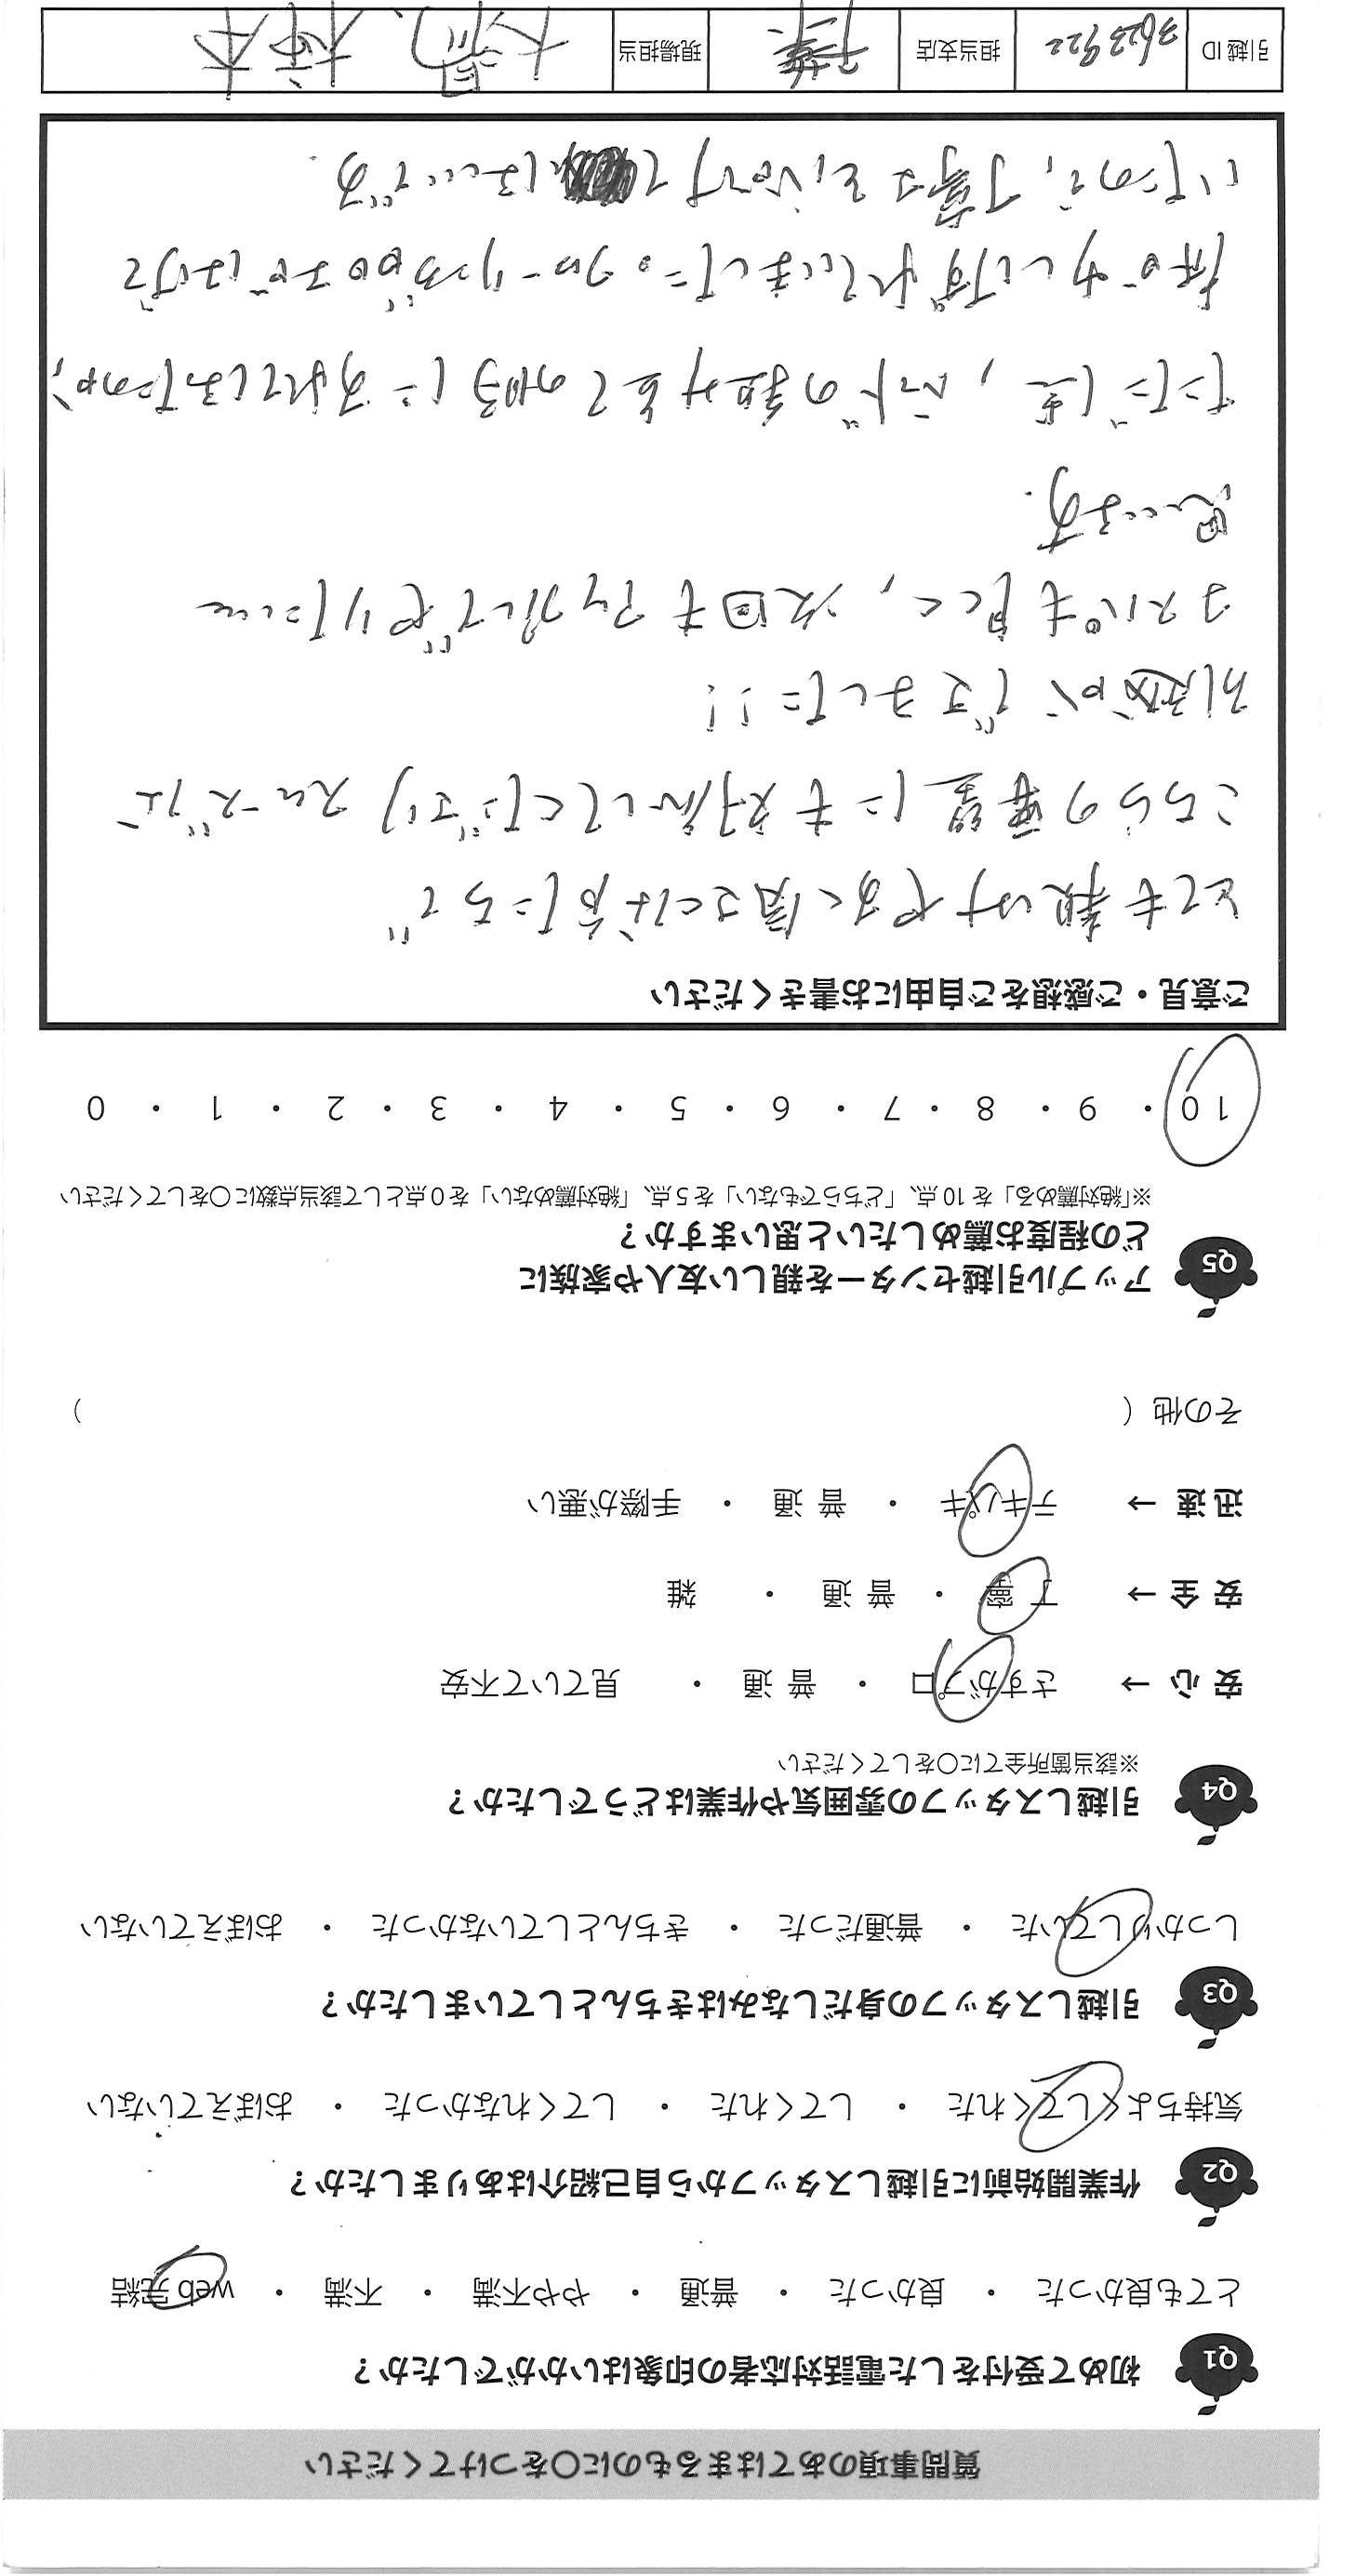 質問事項のあてはまるものに〇をつけてください
Q1 初めて受付をした電話対応者の印象はいかがでしたか？
とても良かった ・ 良かった ・ 普通 ・ やや不満 ・ 不満 ・ web 完結
Q2 作業開始前に引越しスタッフから自己紹介はありましたか？
気持ちよくしてくれた ・ してくれた ・ してくれなかった ・ おぼえていない
Q3 引越しスタッフの身だしなみはきちんとしていましたか？
しっかりしていた ・ 普通だった ・ きちんとしていなかった ・ おぼえていない
Q4 引越しスタッフの雰囲気や作業はどうでしたか？
※該当箇所全てに〇をしてください
安 心 → さすがプロ ・ 普 通 ・ 見ていて不安
安 全 → 丁 寧 ・ 普 通 ・ 雑
迅 速 → テキパキ ・ 普 通 ・ 手際が悪い
その他（ ）
Q5 アップル引越センターを親しい友人や家族に
どの程度お薦めしたいと思いますか？
※「絶対薦める」を 10 点、「どちらでもない」を 5 点、「絶対薦めない」を 0 点として該当点数に〇をしてください
10 ・ 9 ・ 8 ・ 7 ・ 6 ・ 5 ・ 4 ・ 3 ・ 2 ・ 1 ・ 0
ご意見・ご感想をご自由にお書きください
とても親しみやすく気さくな方たちで
こちらの要望にも対応してくださり スムーズに
引越ができました!!
コスパも良く、次回もアップルでやりたいと
思います.
ただし、ベッドの組み立ての時に
床が少し ていました。フローリング まではげて
いたので、丁寧さも ほしいです.
引越 ID 3623922 担当支店 現場担当